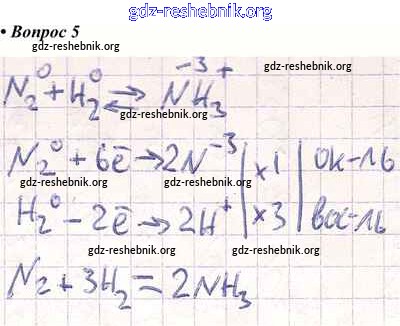 gdz-reshebnik.org
• Вопрос 5
gdz-reshebnik.org
gdz-reshebnik.org
N₂⁰ + H₂⁰ ⇄ N⁻³H₃⁺
gdz-reshebnik.org
N₂⁰ + 6ē → 2N⁻³ | ×1 | ок-ль
gdz-reshebnik.org gdz-reshebnik.org
H₂⁰ - 2ē → 2H⁺ | ×3 | вос-ль
gdz-reshebnik.org gdz-reshebnik.org
N₂ + 3H₂ = 2NH₃